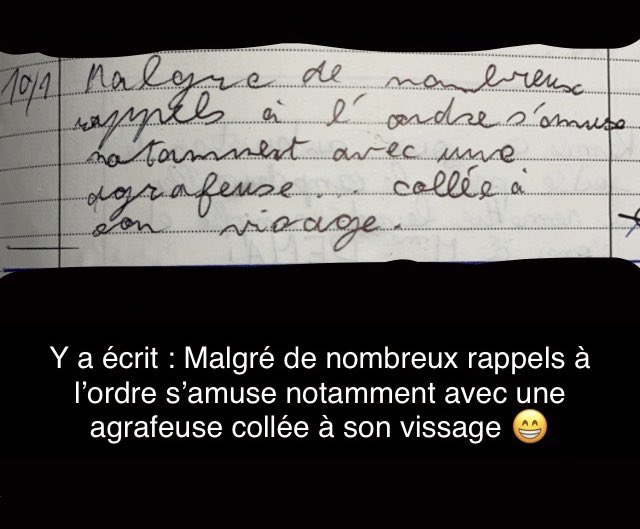 10/1 Malgré de nombreux
rappels à l' ordre s'amuse
notamment avec une
agrafeuse... collée à
son visage.
Y a écrit : Malgré de nombreux rappels à
l’ordre s’amuse notamment avec une
agrafeuse collée à son vissage 😁